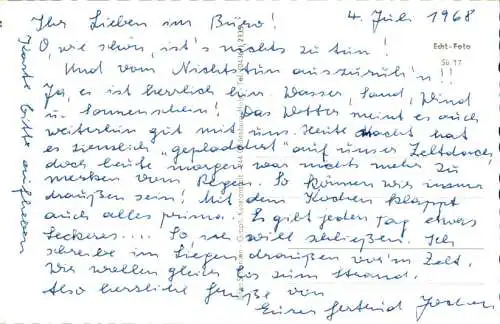 Ihr Lieben im Büro! 4. Juli 1968
O, wie schön, ist's nichts zu tun!
Und vom Nichtstun auszuruh'n!!
Ja, es ist herrlich hier. Wasser, Sand, Wind
u. Sonnenschein! Das Wetter meint es auch
weiterhin gut mit uns. Heute Nacht hat
es ziemlich "gepladdert" auf unser Zeltdach,
doch heute morgen war nichts mehr zu
merken vom Regen. So können wir immer
draußen sein! Mit dem Kochen klappt
auch alles prima. Es gibt jeden Tag etwas
Leckeres.... So ich will schließen. Ich
schreibe im Liegen draußen vor'm Zelt.
Wir wollen gleich bis zum Strand.
Also herzliche Grüße von
Eurer Gertrud
Karte bitte aufheben
Echt-Foto
Sü 17